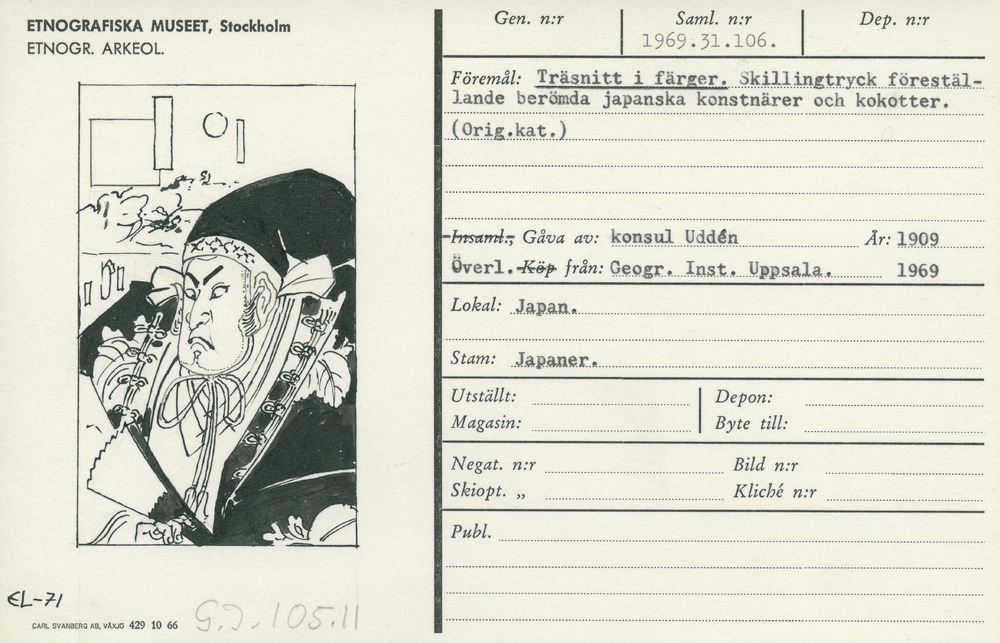 ETNOGRAFISKA MUSEET, Stockholm
ETNOGR. ARKEOL.
EL-71
CARL SVANBERG AB, VÄXJÖ 429 10 66
G.J. 105.11
Gen. n:r
Saml. n:r
1969.31.106.
Dep. n:r
Föremål: Träsnitt i färger. Skillingtryck förestäl-
lande berömda japanska konstnärer och kokotter.
(Orig.kat.)
Insaml.; Gåva av: konsul Uddén År: 1909
Överl. Köp från: Geogr. Inst. Uppsala. 1969
Lokal: Japan.
Stam: Japaner.
Utställt: Depon:
Magasin: Byte till:
Negat. n:r Bild n:r
Skiopt. „ Kliché n:r
Publ.